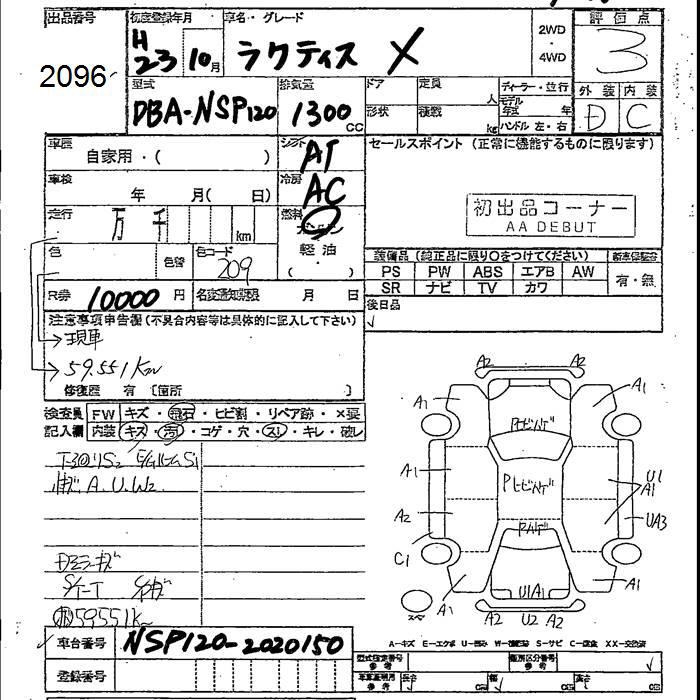 出品番号 初度登録年月 車名・グレード 2WD ・ 4WD 評価点
2096 H23 10月 ラクティス X 3
型式 排気量 ドア 定員 人 ディーラー・並行 外装 内装
DBA-NSP120 1300 CC 形状 積載 kg モデル年式 年 D C
ハンドル 左・右
車歴 自家用・( ) シフト AT セールスポイント (正常に機能するものに限ります)
車検 年 月( 日) 冷房 AC
初出品コーナー
AA DEBUT
走行 万 千 km 燃料 ガソリン
色 色替 色コード 209 軽・油
( )
装備品 (純正品に限り○をつけてください) 新車保証書
PS PW ABS エアB AW 有・無
SR ナビ TV カワ
R券 10000 円 名変通知期限 月 日 後日品
注意事項申告欄 (不具合内容等は具体的に記入して下さい)
現車
59.551Km
修復歴 有 [箇所 ]
検査員 FW キズ・飛石・ヒビ割・リペア跡・×要
記入欄 内装 キズ・汚・コゲ・穴・スレ・キレ・破レ
A.U.W2
59551K
車台番号 NSP120-2020150
登録番号
A2 A2
A1 A1
A1 U1
A1
A2 UA3
C1
A1 U1A1 A1
A2 U2 A2
スペア
A-キズ E-エクボ U-凹み W-補修跡 S-サビ C-腐食 XX-交換済
型式指定番号 参考 類別区分番号 参考
車庫証明用 参考 長さ cm 幅 cm 高さ cm